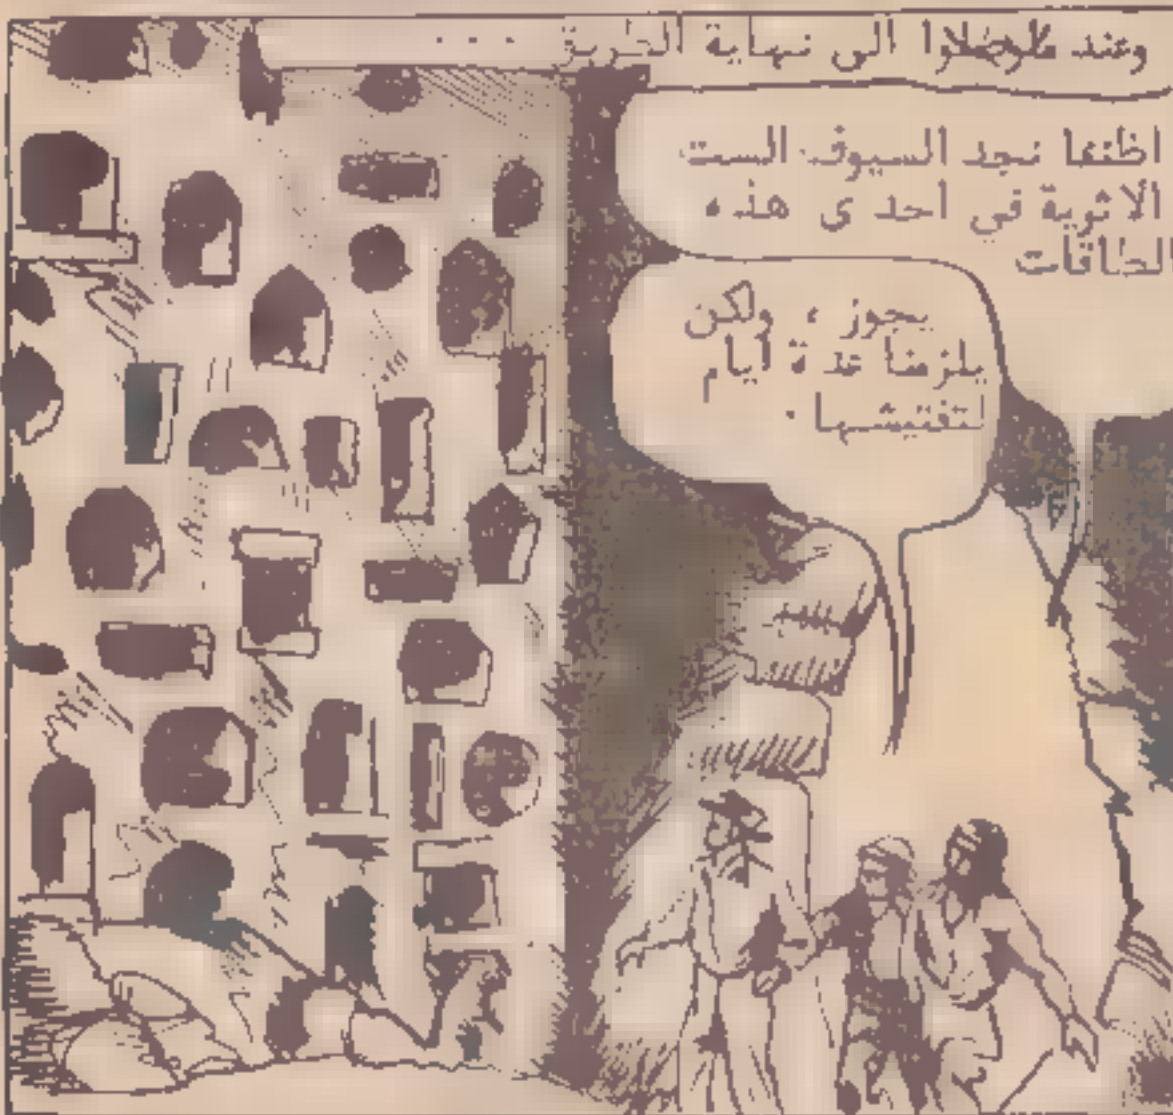 وعند ما وصلوا الى نهاية الطريق ...
اظننا نجد السيوف الست
الاثرية في احدى هذه
الطاقات
يجوز ، ولكن
يلزمنا عدة أيام
لتفتيشها .